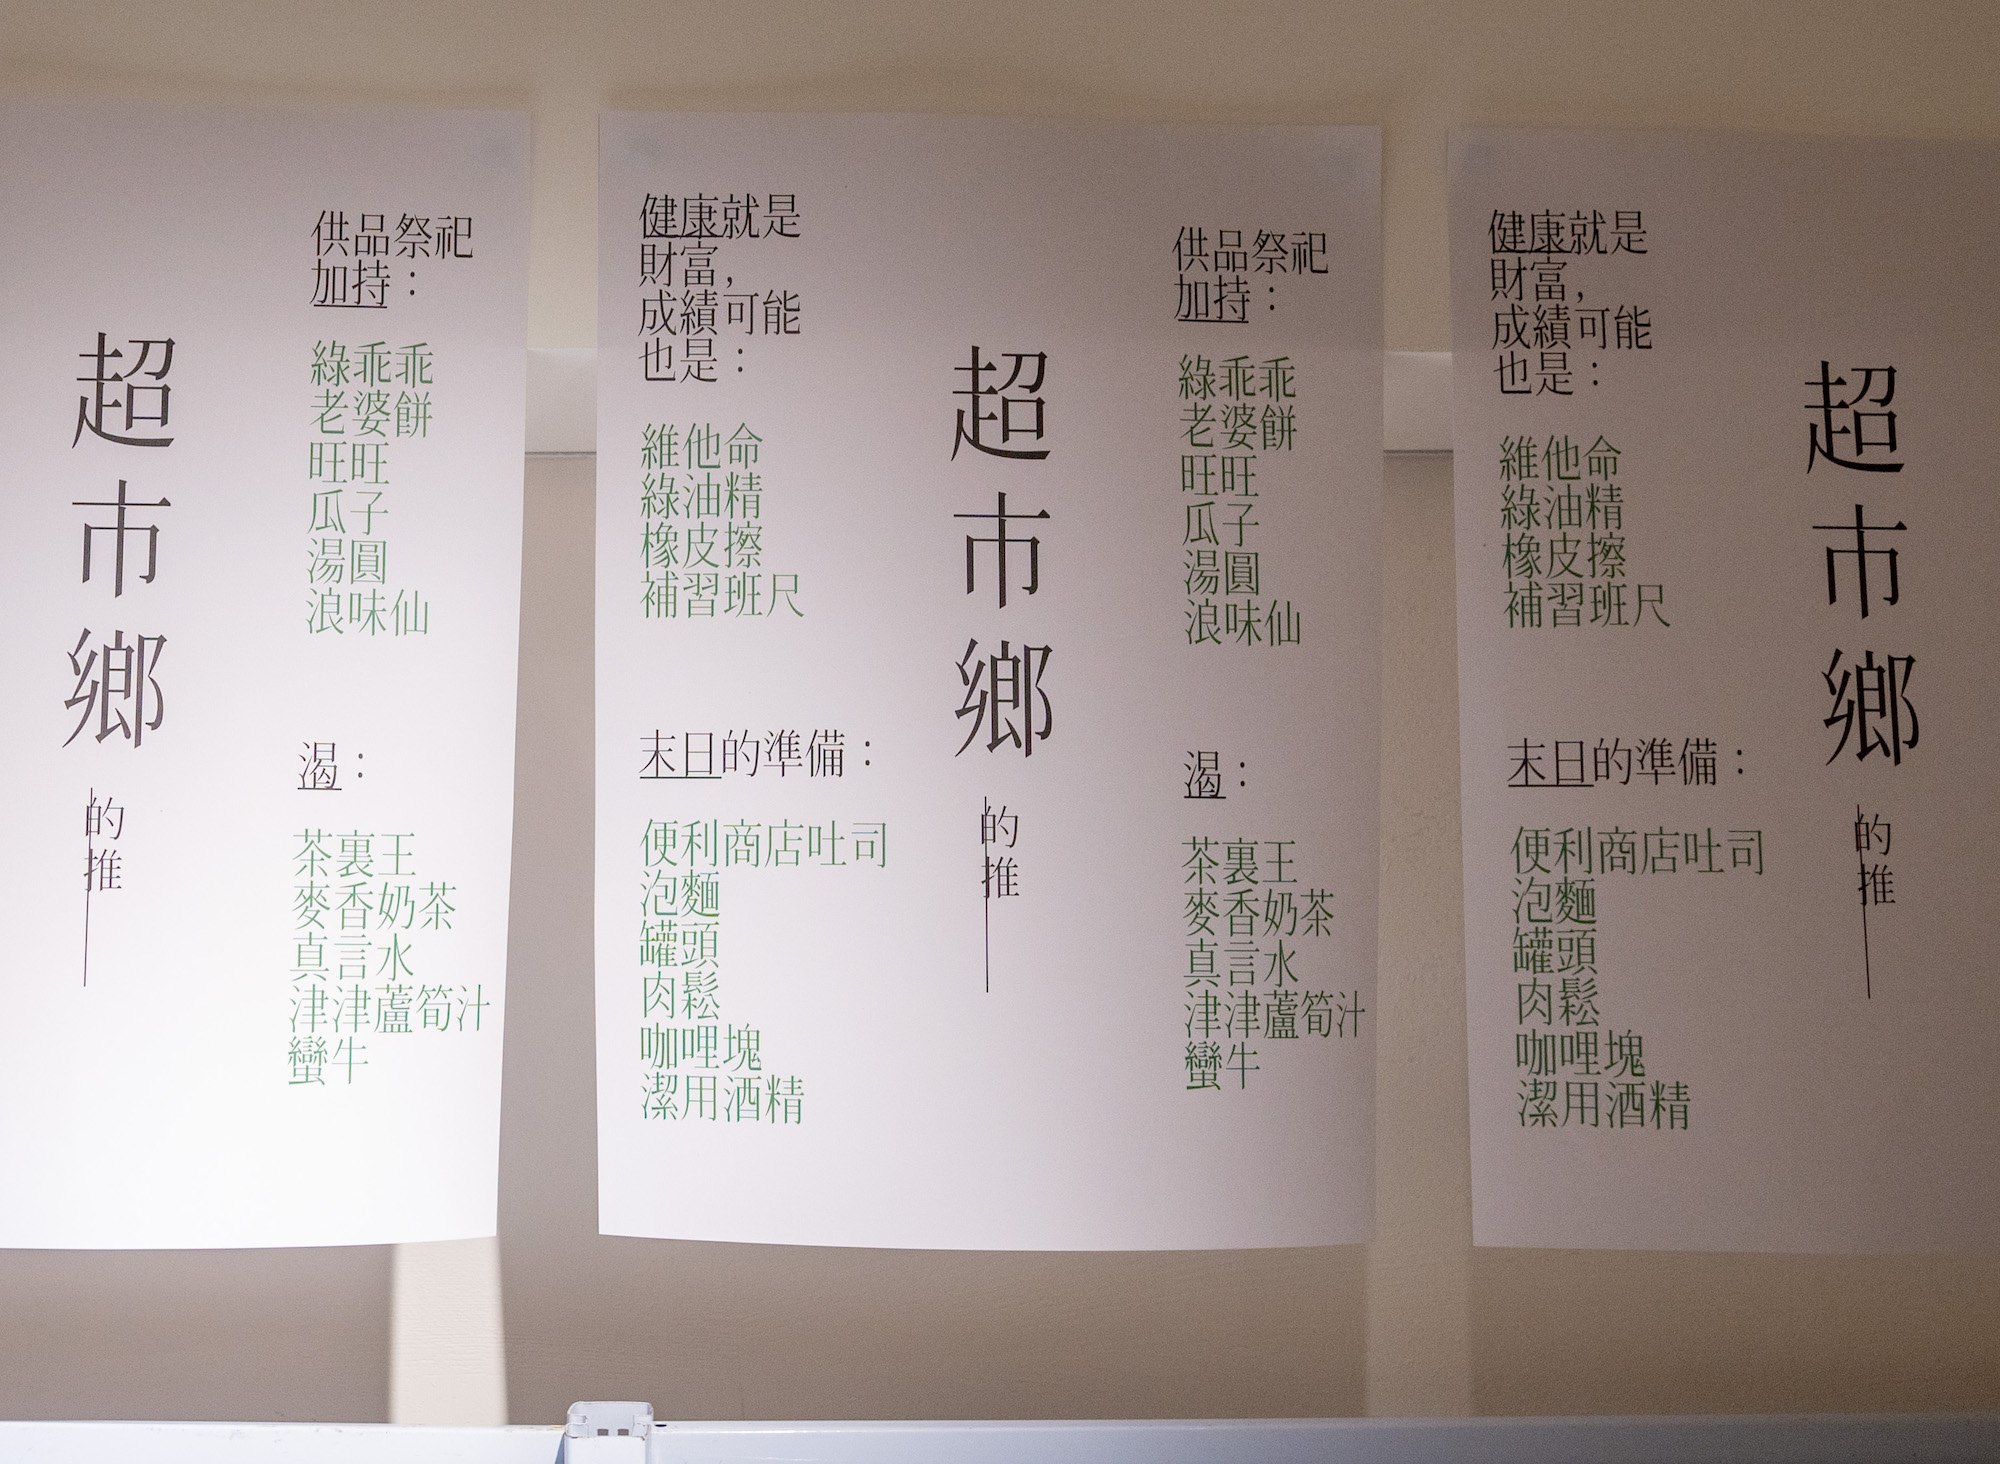 超市鄉
的推
供品祭祀
加持：
綠乖乖
老婆餅
旺旺
瓜子
湯圓
浪味仙
渴：
茶裏王
麥香奶茶
真言水
津津蘆筍汁
蠻牛
健康就是
財富，
成績可能
也是：
維他命
綠油精
橡皮擦
補習班尺
末日的準備：
便利商店吐司
泡麵
罐頭
肉鬆
咖哩塊
潔用酒精
超市鄉
的推
供品祭祀
加持：
綠乖乖
老婆餅
旺旺
瓜子
湯圓
浪味仙
渴：
茶裏王
麥香奶茶
真言水
津津蘆筍汁
蠻牛
健康就是
財富，
成績可能
也是：
維他命
綠油精
橡皮擦
補習班尺
末日的準備：
便利商店吐司
泡麵
罐頭
肉鬆
咖哩塊
潔用酒精
超市鄉
的推